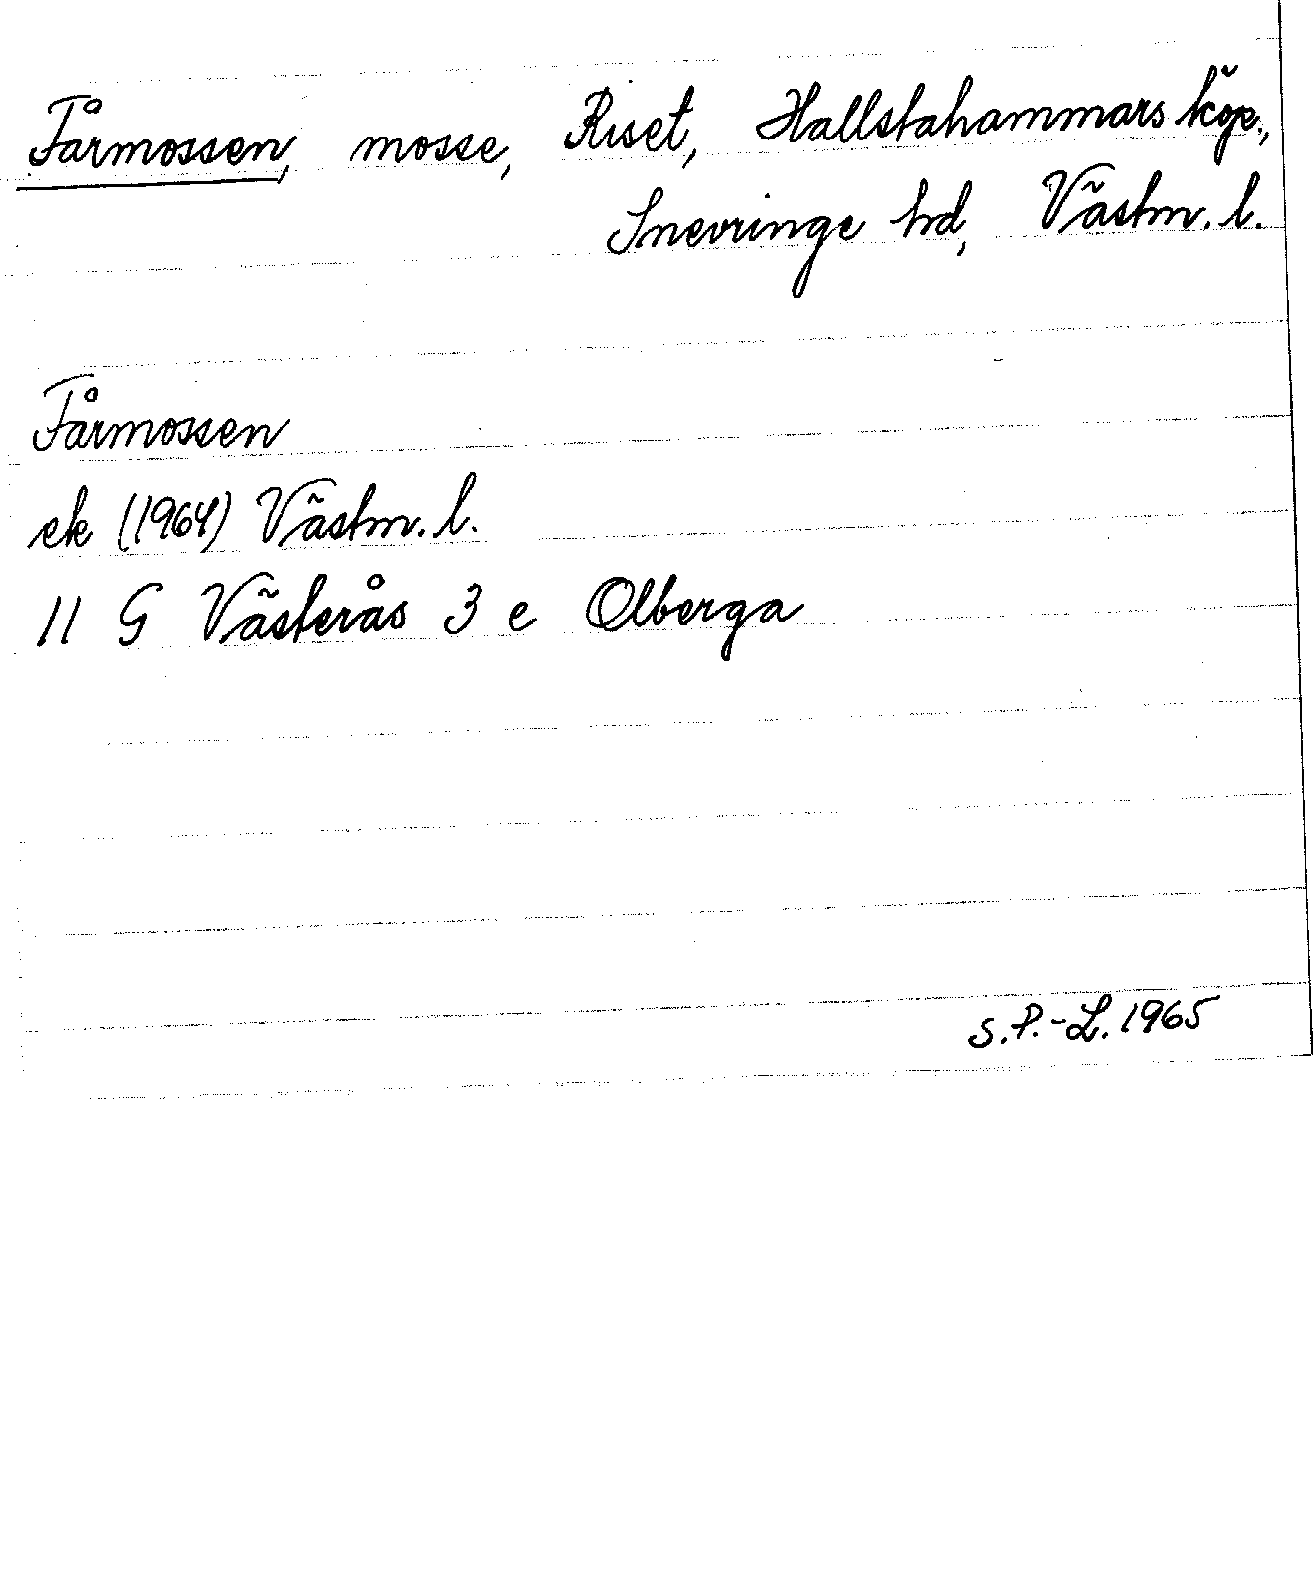 Fårmossen, mosse, Riset, Hallstahammars köp.,
Snevringe hd, Västm. l.
Fårmossen
ek (1964) Västm. l.
11 G Västerås 3 e Olberga
S.P.-L. 1965